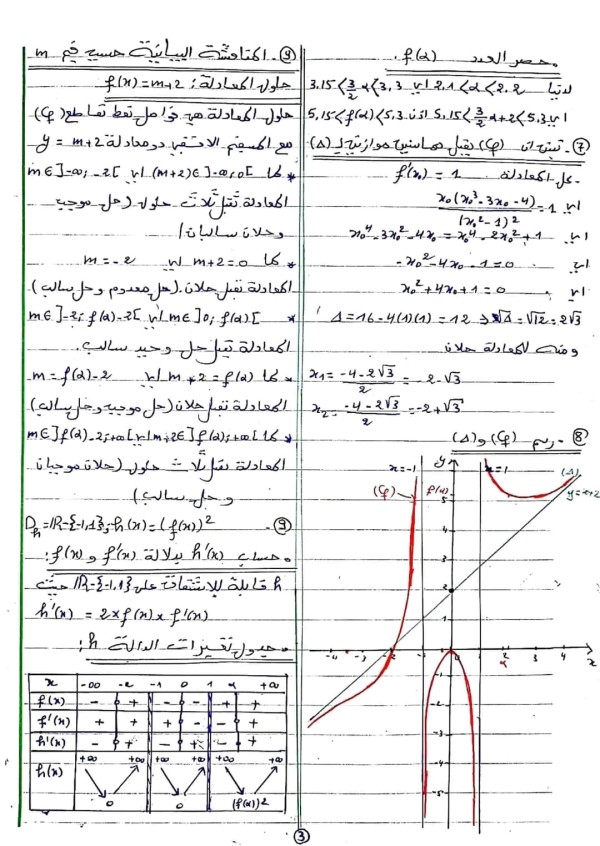 حصر العدد f(α).
لدينا 2.1<α<2.2 أي 3.15<3/2 α<3.3
أي 5.15<3/2 α+2<5.3 إذن 5.15<f(α)<5.3
⑦ - تبيان أن (Cf) يقبل مماسين موازيين لـ (Δ)
- حل المعادلة f'(x) = 1
أي x₀(x₀³-3x₀-4)/(x₀²-1)² = 1
أي x₀⁴-3x₀²-4x₀ = x₀⁴-2x₀²+1
أي -x₀²-4x₀-1=0
أي x₀²+4x₀+1=0
Δ=16-4(1)(1)=12 ⇒ √Δ=√12=2√3
ومنه للمعادلة حلان
x₁=(-4-2√3)/2=-2-√3
x₂=(-4-2√3)/2=-2+√3
⑧ - رسم (Cf) و (Δ)
x=-1 y x=1 (Δ)
(Cf) f(α) y=x+2
5
4
3
2
1
-4 -3 -2 0 1 2 α 3 4 x
-1
-2
-3
-4
-5
⑨ - المناقشة البيانية حسب قيم m
حلول المعادلة: f(x)=m+2
حلول المعادلة هي فواصل نقط تقاطع (Cf)
مع المستقيم الأفقي ذو معادلة y = m+2
* لما (m+2)∈]-∞;0[ أي m∈]-∞;-2[
المعادلة تقبل ثلاث حلول (حل موجب
وحلان سالبان)
* لما m+2=0 أي m=-2
المعادلة تقبل حلان. (حل معدوم وحل سالب)
* m∈]0;f(α)[ أي m∈]-2;f(α)-2[
المعادلة تقبل حل وحيد سالب.
* لما m+2=f(α) أي m=f(α)-2
المعادلة تقبل حلان (حل موجب وحل سالب)
* لما m+2∈]f(α);+∞[ أي m∈]f(α)-2;+∞[
المعادلة تقبل ثلاث حلول (حلان موجبان
وحل سالب)
⑨ - h(x)=(f(x))² ; D_h=ℝ-{-1,1}
• حساب h'(x) بدلالة f'(x) و f(x):
h قابلة للاشتقاق على ℝ-{-1,1} حيث
h'(x) = 2×f(x)×f'(x)
• جدول تغيرات الدالة h:
x -∞ -2 -1 0 1 α +∞
f(x) - + - - + +
f'(x) + + + - - +
h'(x) - + - + - +
h(x) +∞ +∞ +∞ +∞ +∞ +∞
0 0 (f(α))²
③